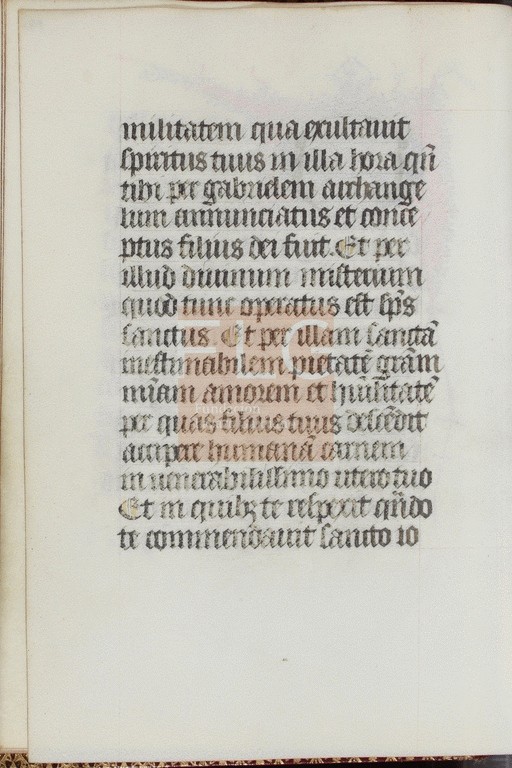 militatem qua exultauit
spiritus tuus in illa hora qñ
tibi per gabrielem archange
lum annunciatus et conce
ptus filius dei fuit. Et per
illud diuinum misterium
quod tunc operatus est sps̄
sanctus. Et per illam sanctā
inestimabilem pietatē grām
miam̄ amorem et hūilitatē
per quas filius tuus descēdit
accipere humanā carnem
in uenerabilissimo utero tuo
Et in quibꝫ te respexit qñdo
te commendauit sancto io
FLG
Fundación